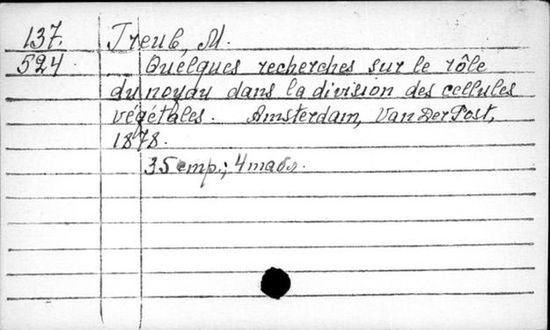 137. Treub, M.
524 Quelques recherches sur le rôle
du noyau dans la division des cellules
végétales. Amsterdam, Van Der Post,
1878.
35 стр.; 4 табл.